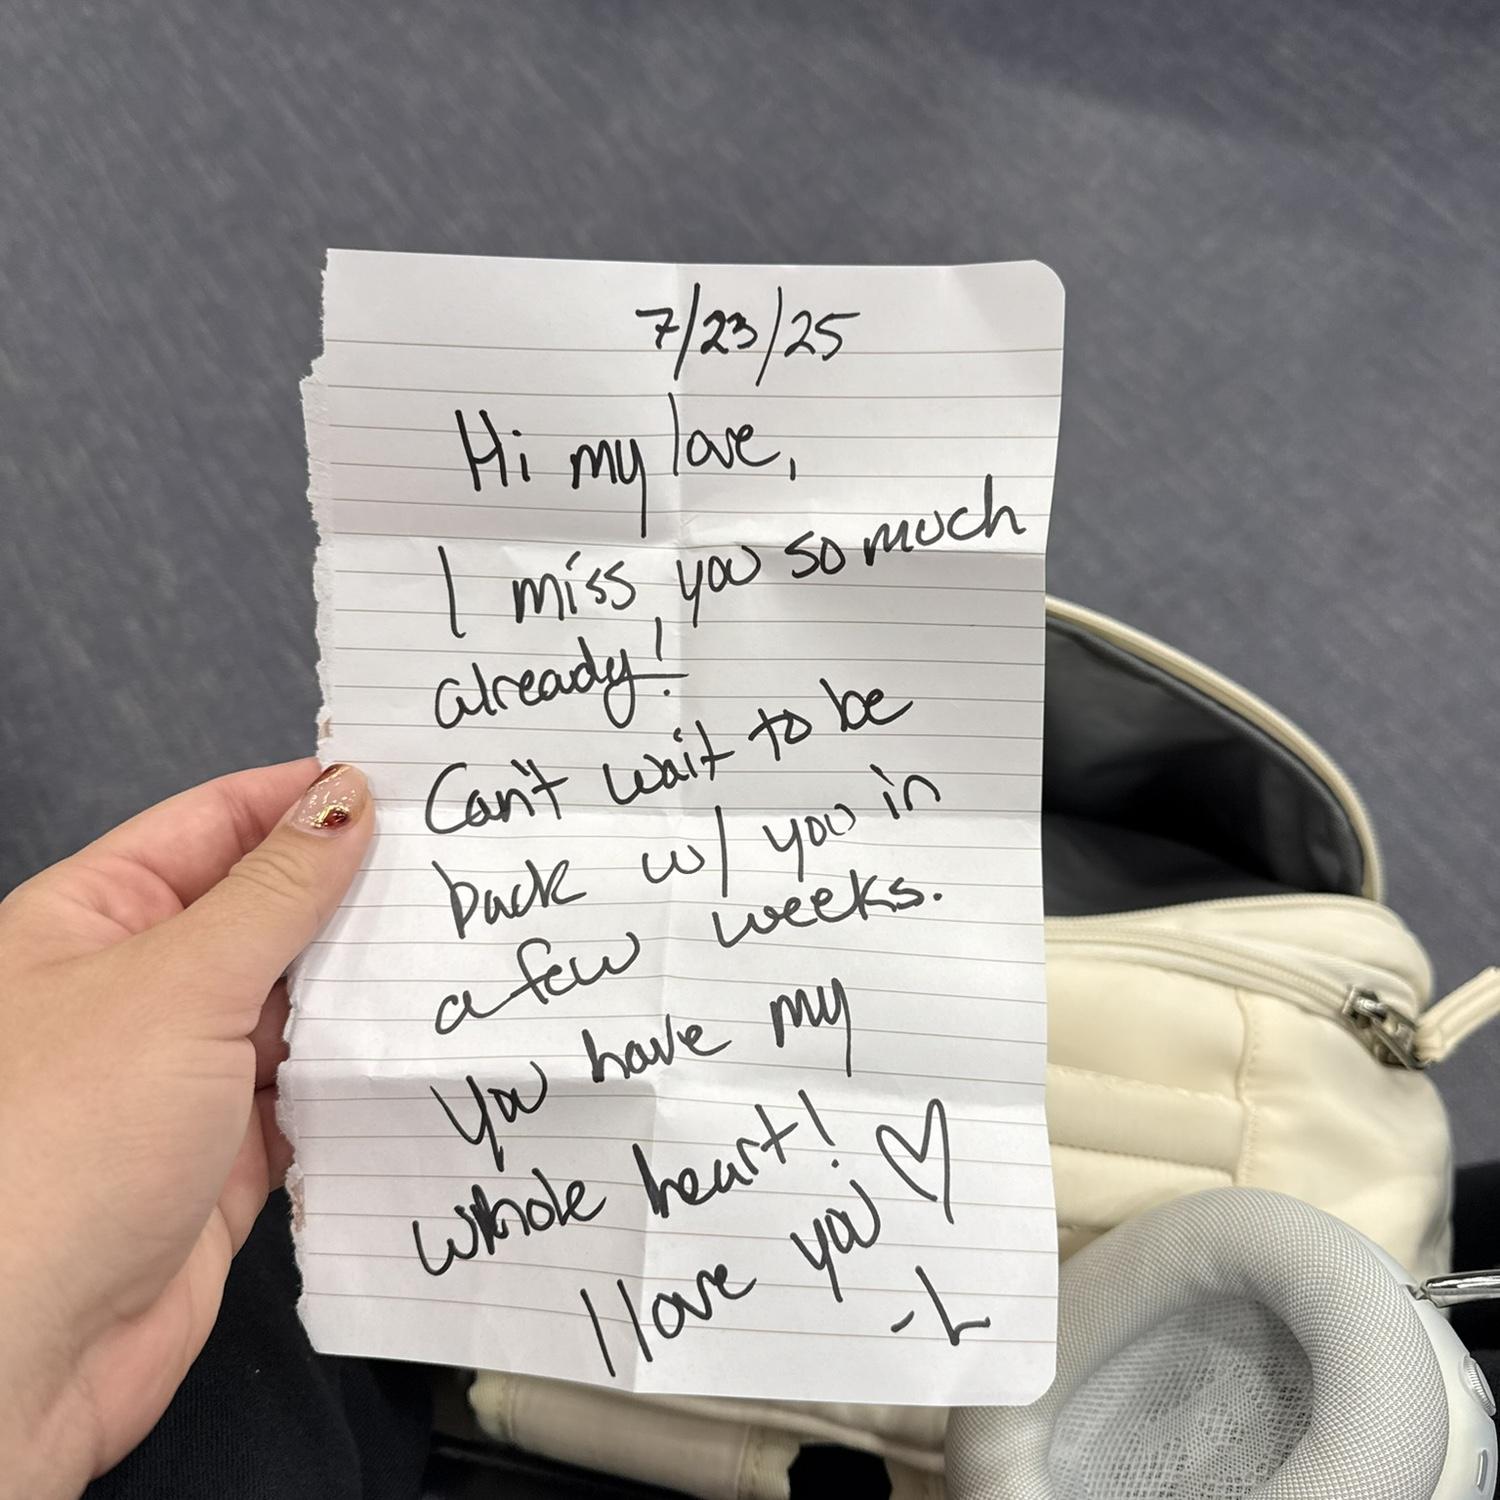 7/23/25
Hi my love,
I miss you so much
already!
Can't wait to be
back w/ you in
a few weeks.
You have my
whole heart!
I love you ♡
-L